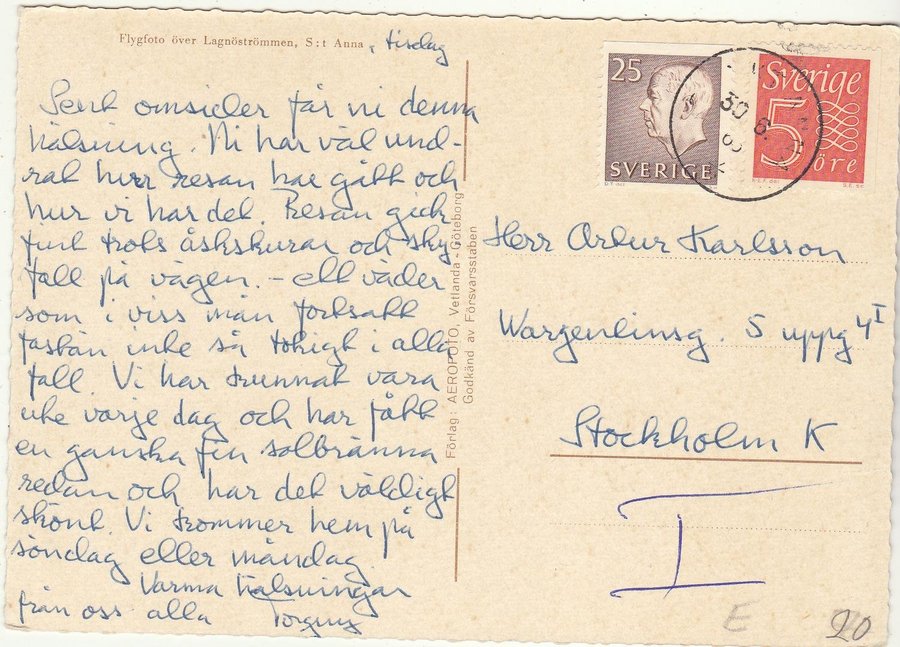 Flygfoto över Lagnöströmmen, S:t Anna, tisdag
Sent omsider får ni denna
hälsning. Ni har väl und-
rat hur resan har gått och
hur vi har det. Resan gick
fint trots åskskurar och sky-
fall på vägen. – ett väder
som i viss mån fortsatt
fastän inte så tokigt i alla
fall. Vi har kunnat vara
ute varje dag och har fått
en ganska fin solbränna
redan och har det väldigt
skönt. Vi kommer hem på
söndag eller måndag.
Varma hälsningar
från oss alla
Förlag: AEROFOTO, Vetlanda - Göteborg
Godkänd av Försvarsstaben
25
SVERIGE
Sverige
5
öre
30.6.
Herr Artur Karlsson
Wargentinsg. 5 uppg 4 I
Stockholm K
I
E
20